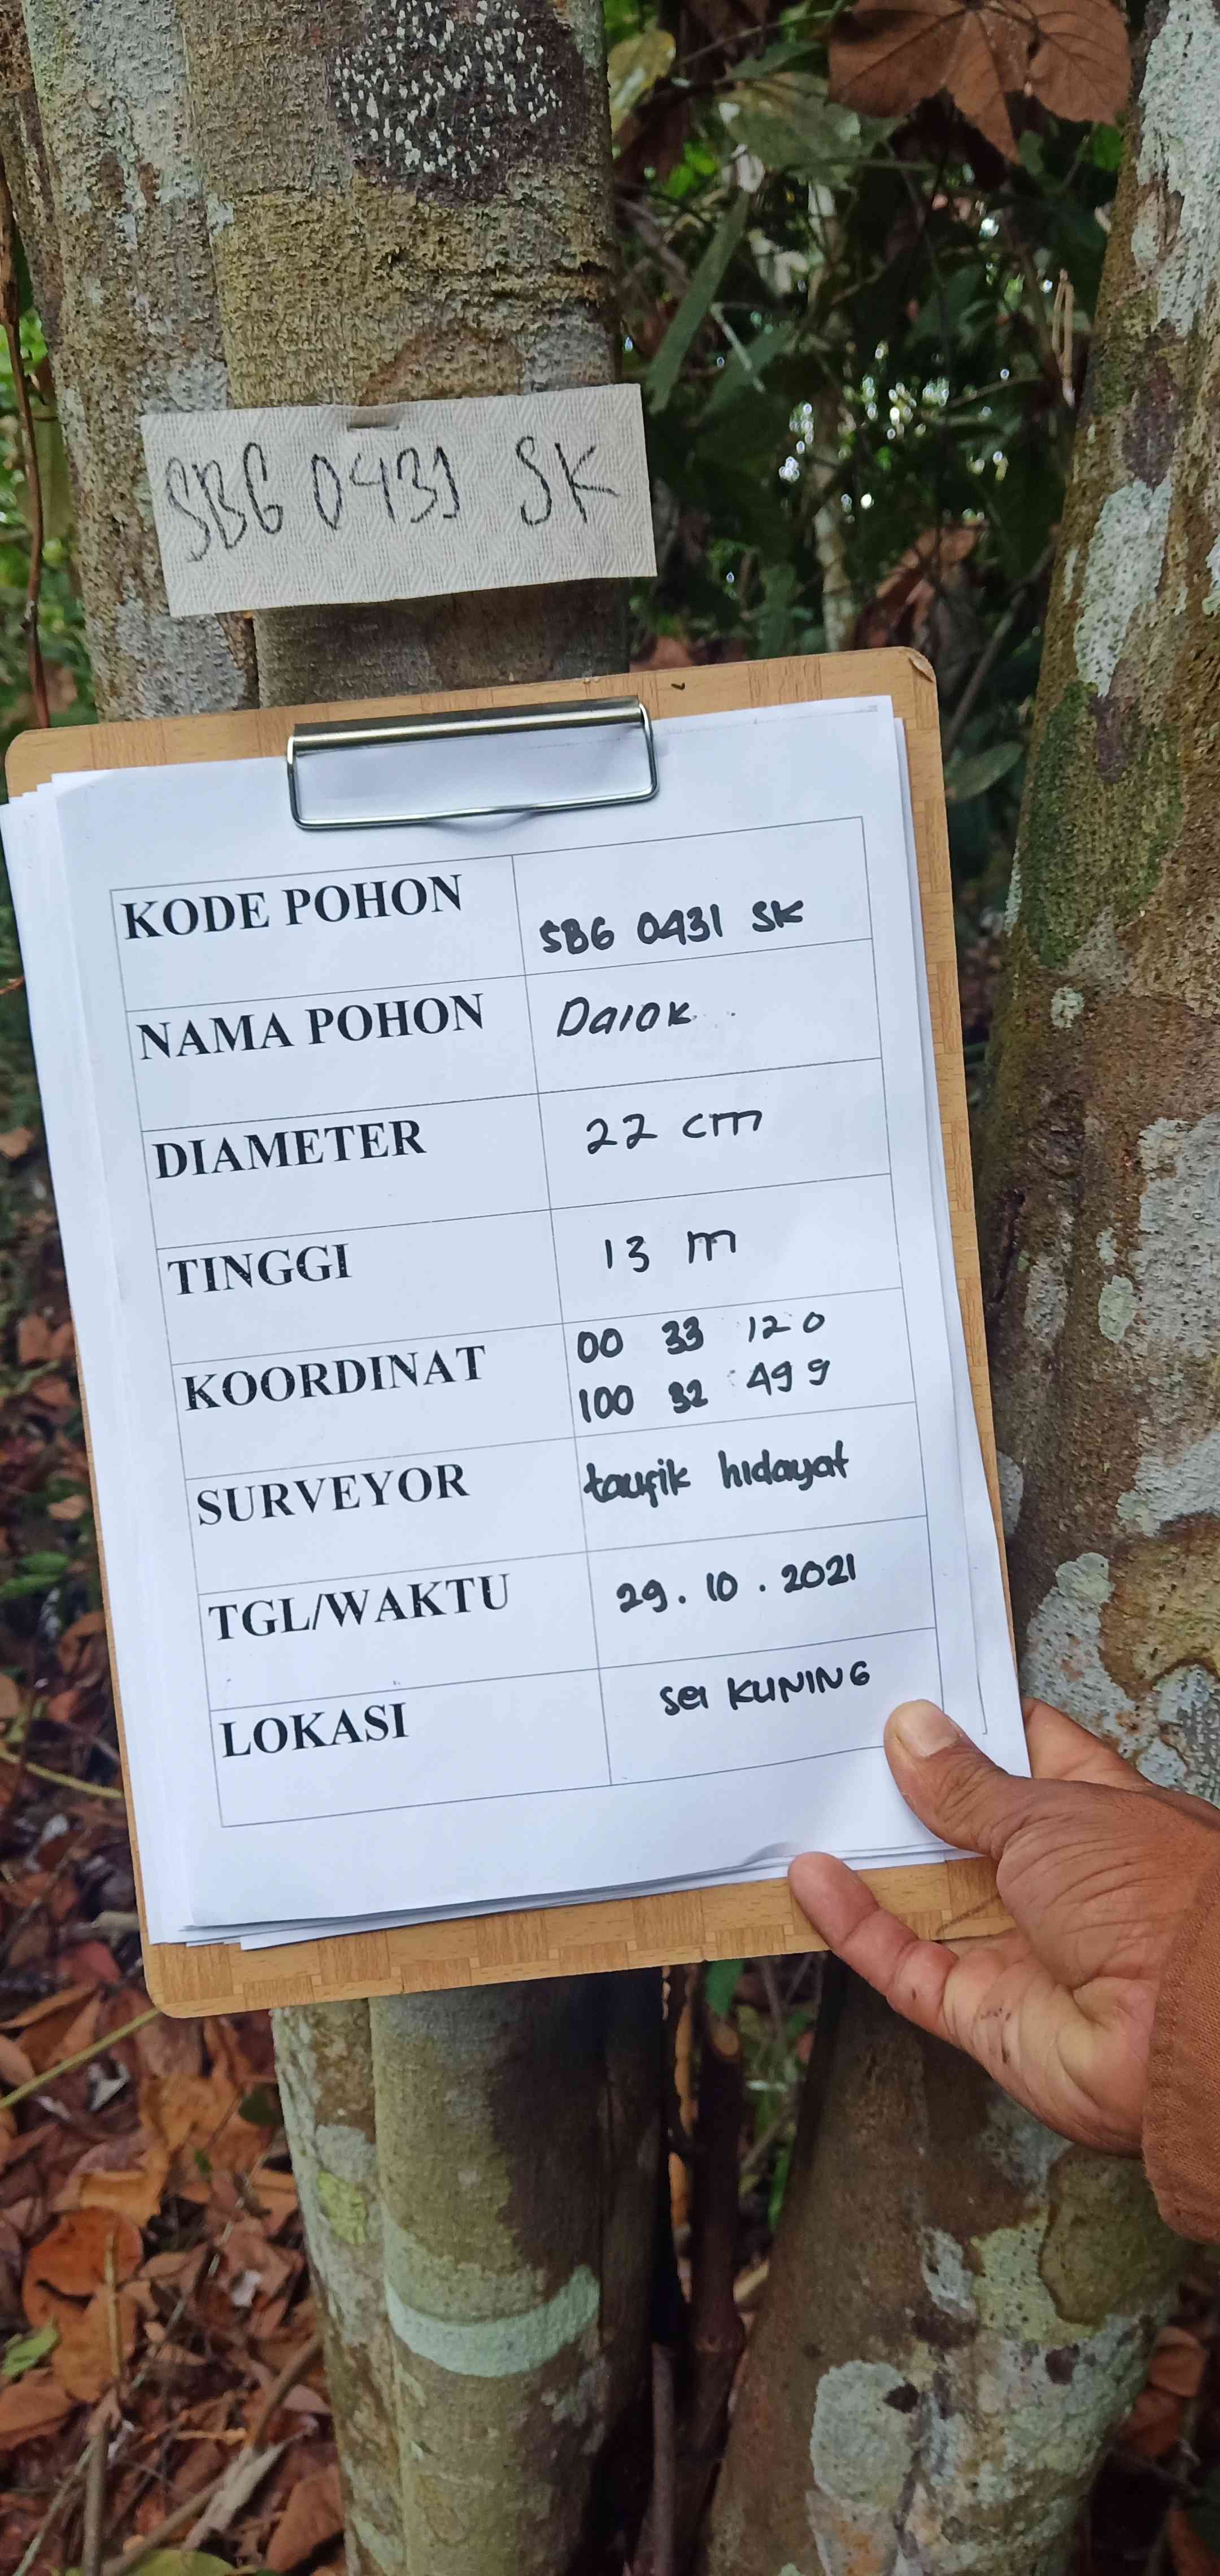 SBG 0431 SK
KODE POHON SBG 0431 SK
NAMA POHON Darok
DIAMETER 22 cm
TINGGI 13 m
KOORDINAT 00 33 120
100 32 499
SURVEYOR taufik hidayat
TGL/WAKTU 29.10.2021
LOKASI sei KUNING